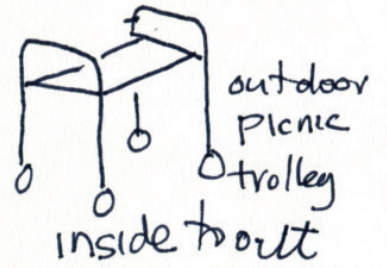 outdoor
picnic
trolley
inside to out